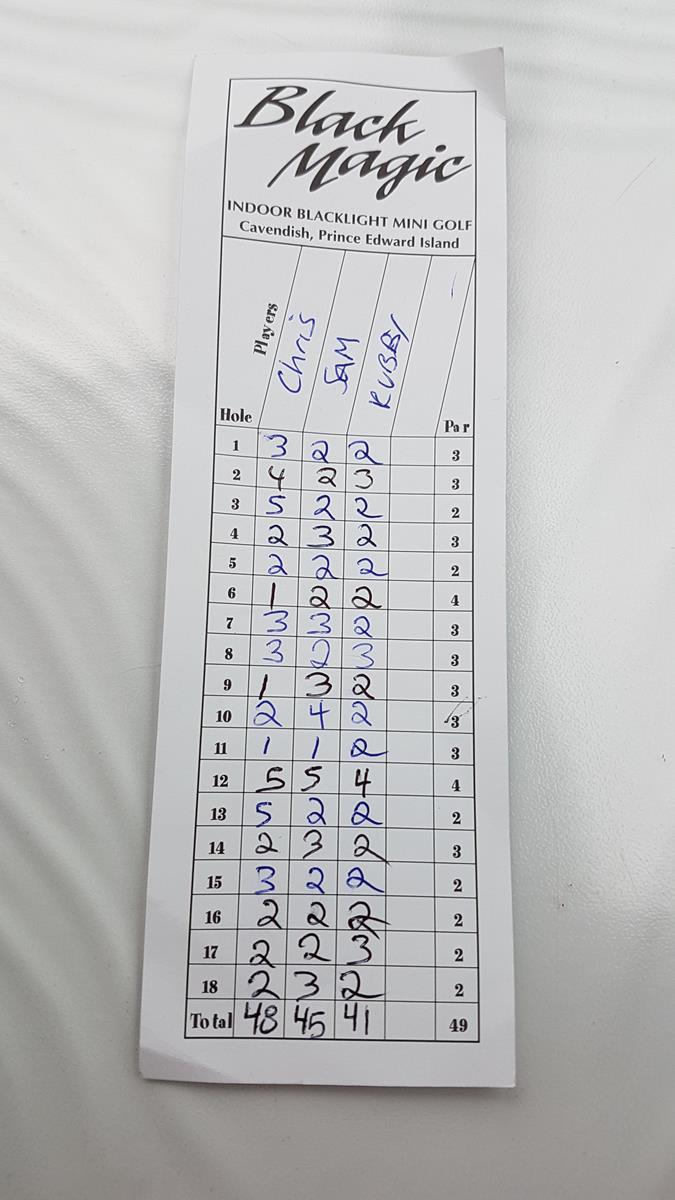 Black
Magic
INDOOR BLACKLIGHT MINI GOLF
Cavendish, Prince Edward Island
Players Chris SAM RUBBY
Hole Par
1 3 2 2 3
2 4 2 3 3
3 5 2 2 2
4 2 3 2 3
5 2 2 2 2
6 1 2 2 4
7 3 3 2 3
8 3 2 3 3
9 1 3 2 3
10 2 4 2 3
11 1 1 2 3
12 5 5 4 4
13 5 2 2 2
14 2 3 2 3
15 3 2 2 2
16 2 2 2 2
17 2 2 3 2
18 2 3 2 2
Total 48 45 41 49